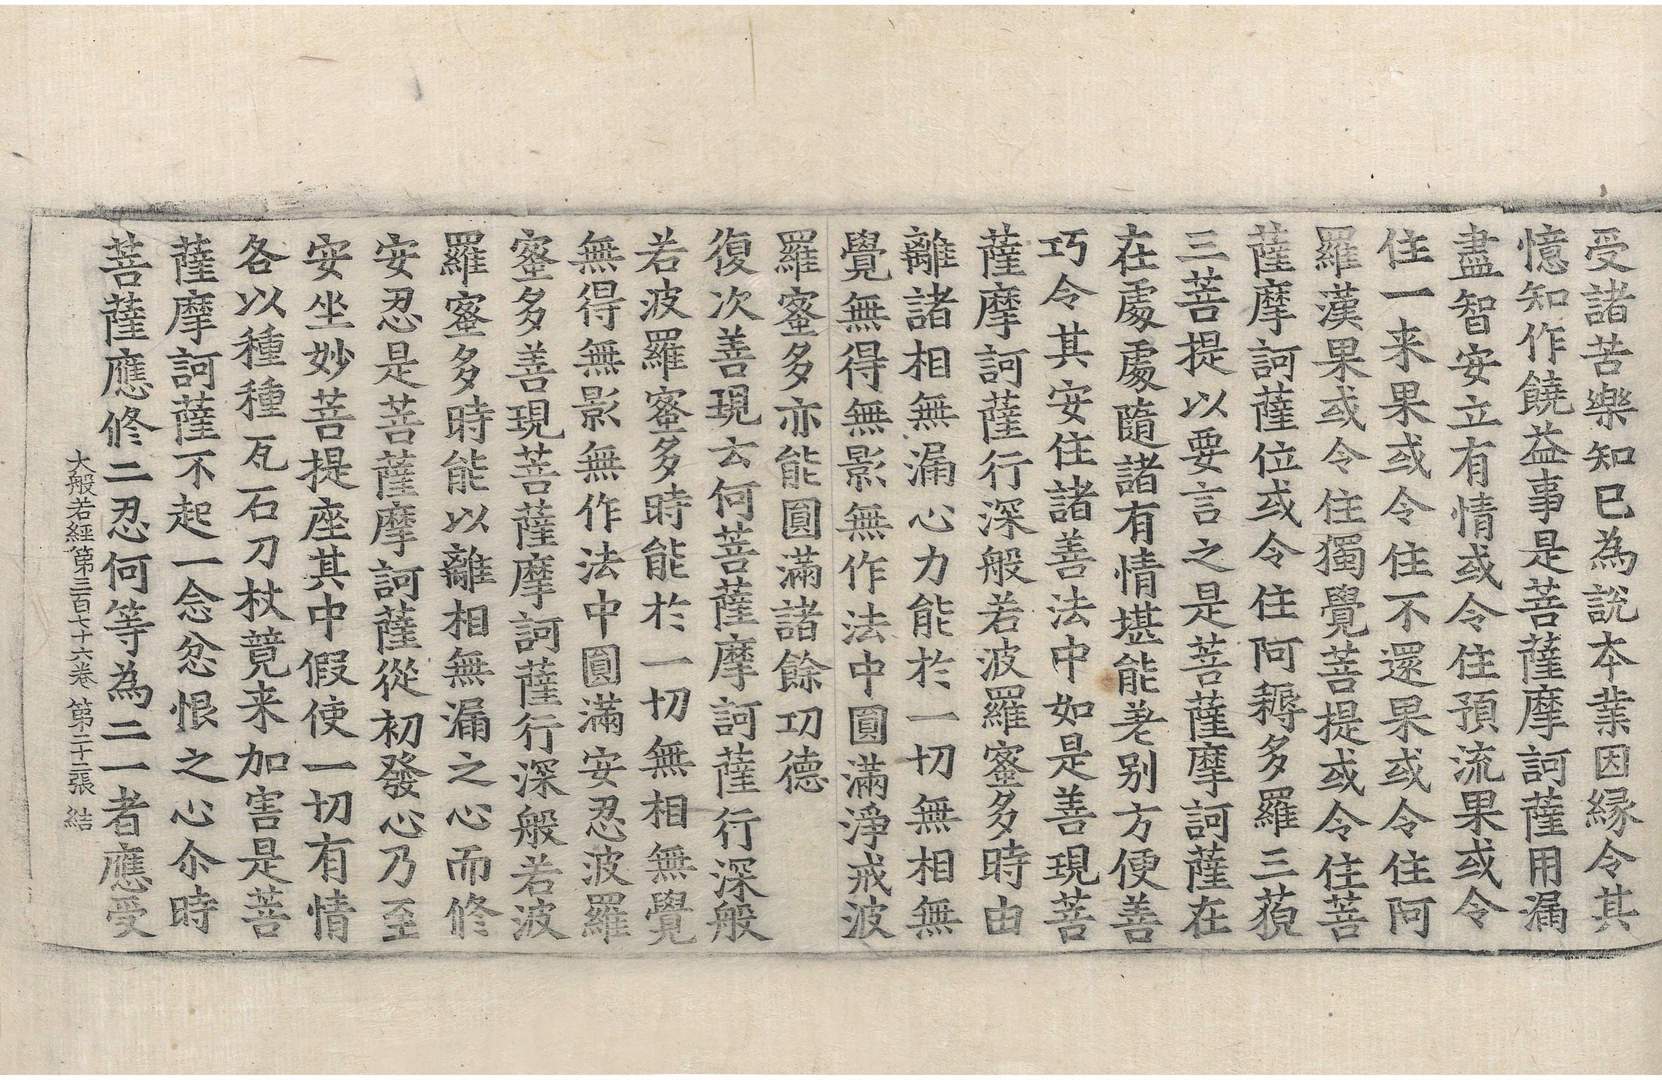 受諸苦樂知已為說本業因縁令其
憶知作饒益事是菩薩摩訶薩用漏
盡智安立有情或令住預流果或令
住一来果或令住不還果或令住阿
羅漢果或令住獨覺菩提或令住菩
薩摩訶薩位或令住阿耨多羅三藐
三菩提以要言之是菩薩摩訶薩在
在處處隨諸有情堪能差别方便善
巧令其安住諸善法中如是善現菩
薩摩訶薩行深般若波羅蜜多時由
離諸相無漏心力能於一切無相無
覺無得無影無作法中圓滿淨戒波
羅蜜多亦能圓滿諸餘功德
復次善現云何菩薩摩訶薩行深般
若波羅蜜多時能於一切無相無覺
無得無影無作法中圓滿安忍波羅
蜜多善現菩薩摩訶薩行深般若波
羅蜜多時能以離相無漏之心而修
安忍是菩薩摩訶薩從初發心乃至
安坐妙菩提座其中假使一切有情
各以種種瓦石刀杖競来加害是菩
薩摩訶薩不起一念忿恨之心尒時
菩薩應修二忍何等為二一者應受
大般若經第三百七十六卷 第二十二張 結